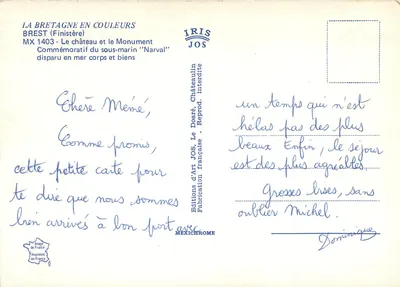 LA BRETAGNE EN COULEURS
BREST (Finistère)
MX 1403 - Le château et le Monument
Commémoratif du sous-marin "Narval"
disparu en mer corps et biens
IRIS
JOS
Editions d'Art JOS, Le Doaré, Châteaulin
Fabrication française - Reprod. interdite
MEXICHROME
Chère Mémé,
Comme promis,
cette petite carte pour
te dire que nous sommes
bien arrivés à bon port avec
un temps qui n'est
hélas pas des plus
beaux Enfin, le séjour
est des plus agréables.
Grosses bises, sans
oublier Michel.
Dominique